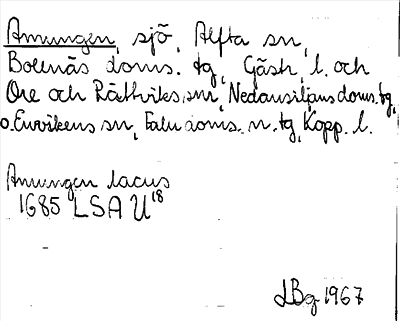 Amungen, sjö, Alfta sn,
Bolenäs doms. tg, Gästr. l. och
Ore och Rättviks snr, Nedansiljans doms. tg,
o. Envikens sn, Falu doms. n. tg, Kopp. l.
Amungen lacus
1685 LSA U 18
LBg 1967